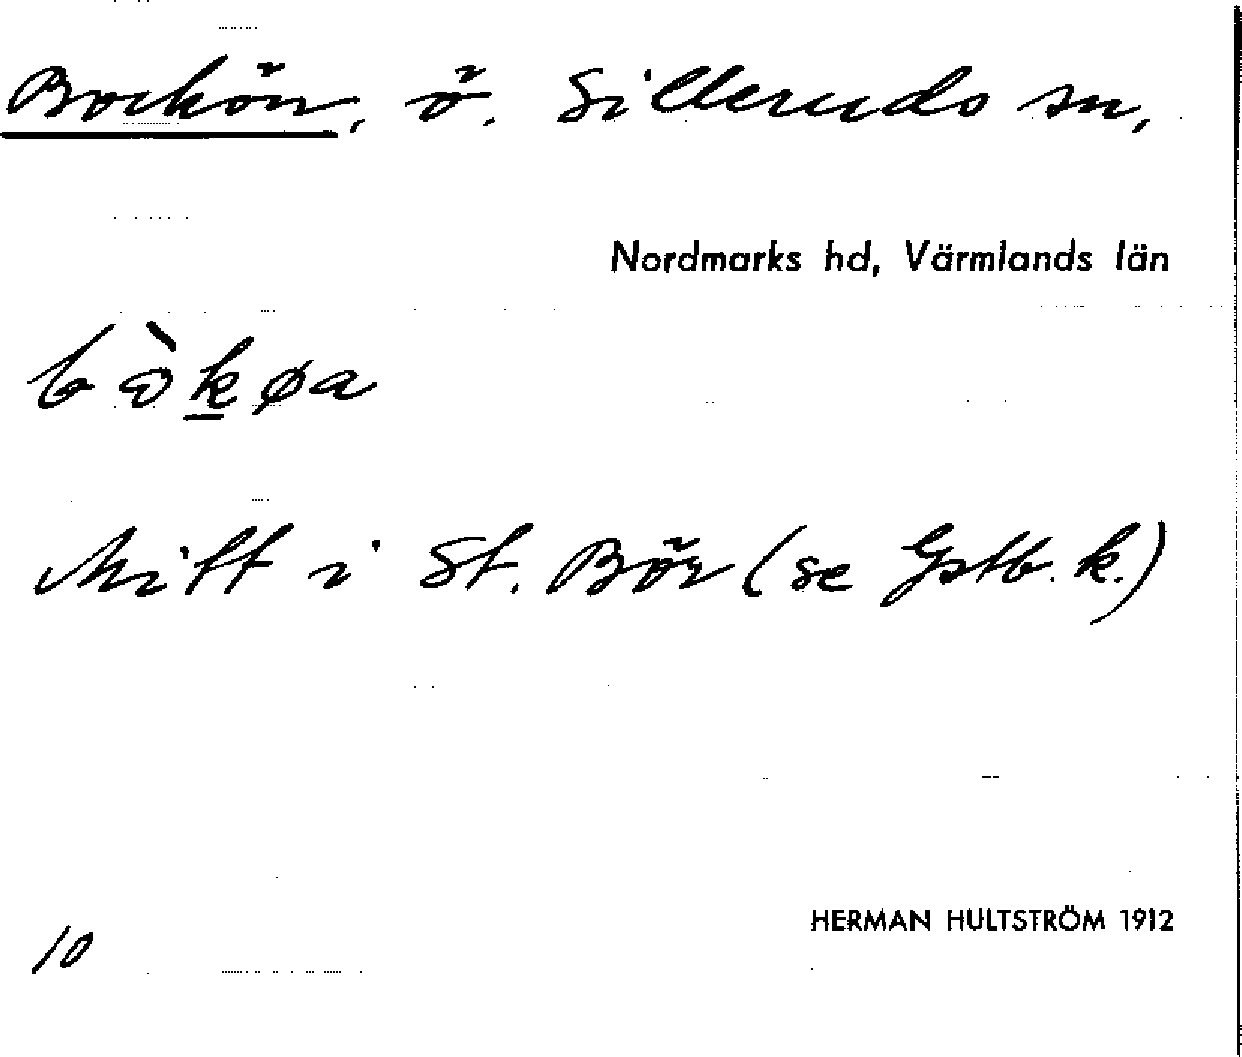 Bockön, ö. Silleruds sn,
Nordmarks hd, Värmlands län
bòkøa
Mitt i St. Bör (se Gstb. k.)
10
HERMAN HULTSTRÖM 1912